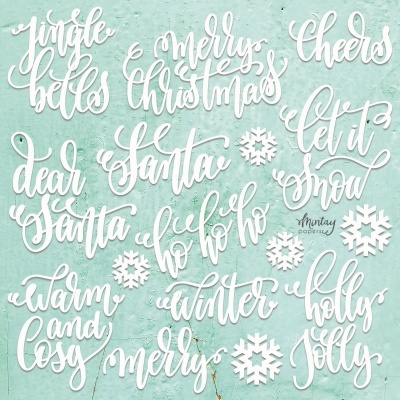 jingle
bells
merry
Christmas
Cheers
dear
Santa
Santa
let it
snow
ho ho ho
Mintay
papers
warm
and
Cosy
winter
merry
holly
Jolly